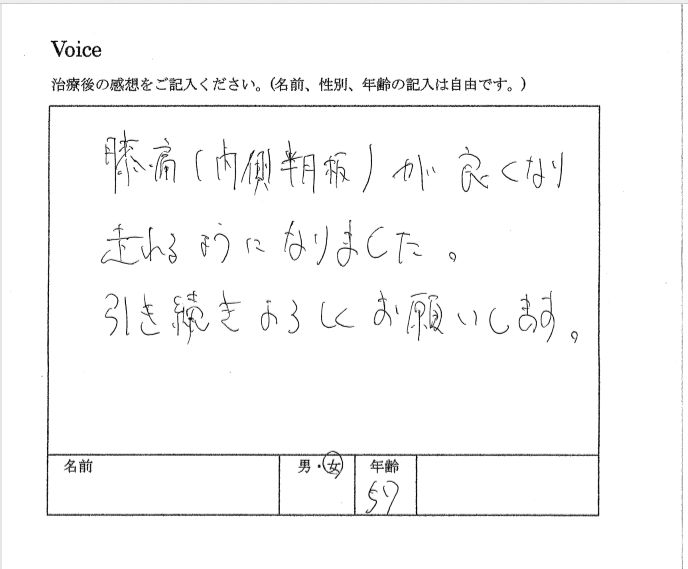 Voice
治療後の感想をご記入ください。(名前、性別、年齢の記入は自由です。)
膝痛(内側半月板)が良くなり
走れるようになりました。
引き続きよろしくお願いします。
名前 男・女 年齢
57